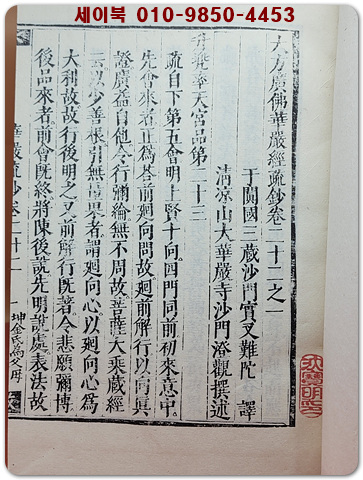 세이북 010-9850-4453
大方廣佛華嚴經疏鈔卷二十二之一
于闐國三藏沙門實叉難陀 譯
清涼山大華嚴寺沙門澄觀撰述
升兜率天宮品第二十三
疏自下第五會明上賢十向四門同前初來意中
先會來者正為答前迴向問故迴前解行以向真
證廣益自他令行彌綸無不周故菩薩大乘藏經
云以少善根引無量果者謂迴向心以迴向心為
大利故故行後明之又前解行既著今悲願彌博
後品來者前會既終將陳後說先明說處表法故
華嚴疏鈔卷二十二 一 坤金氏為父母